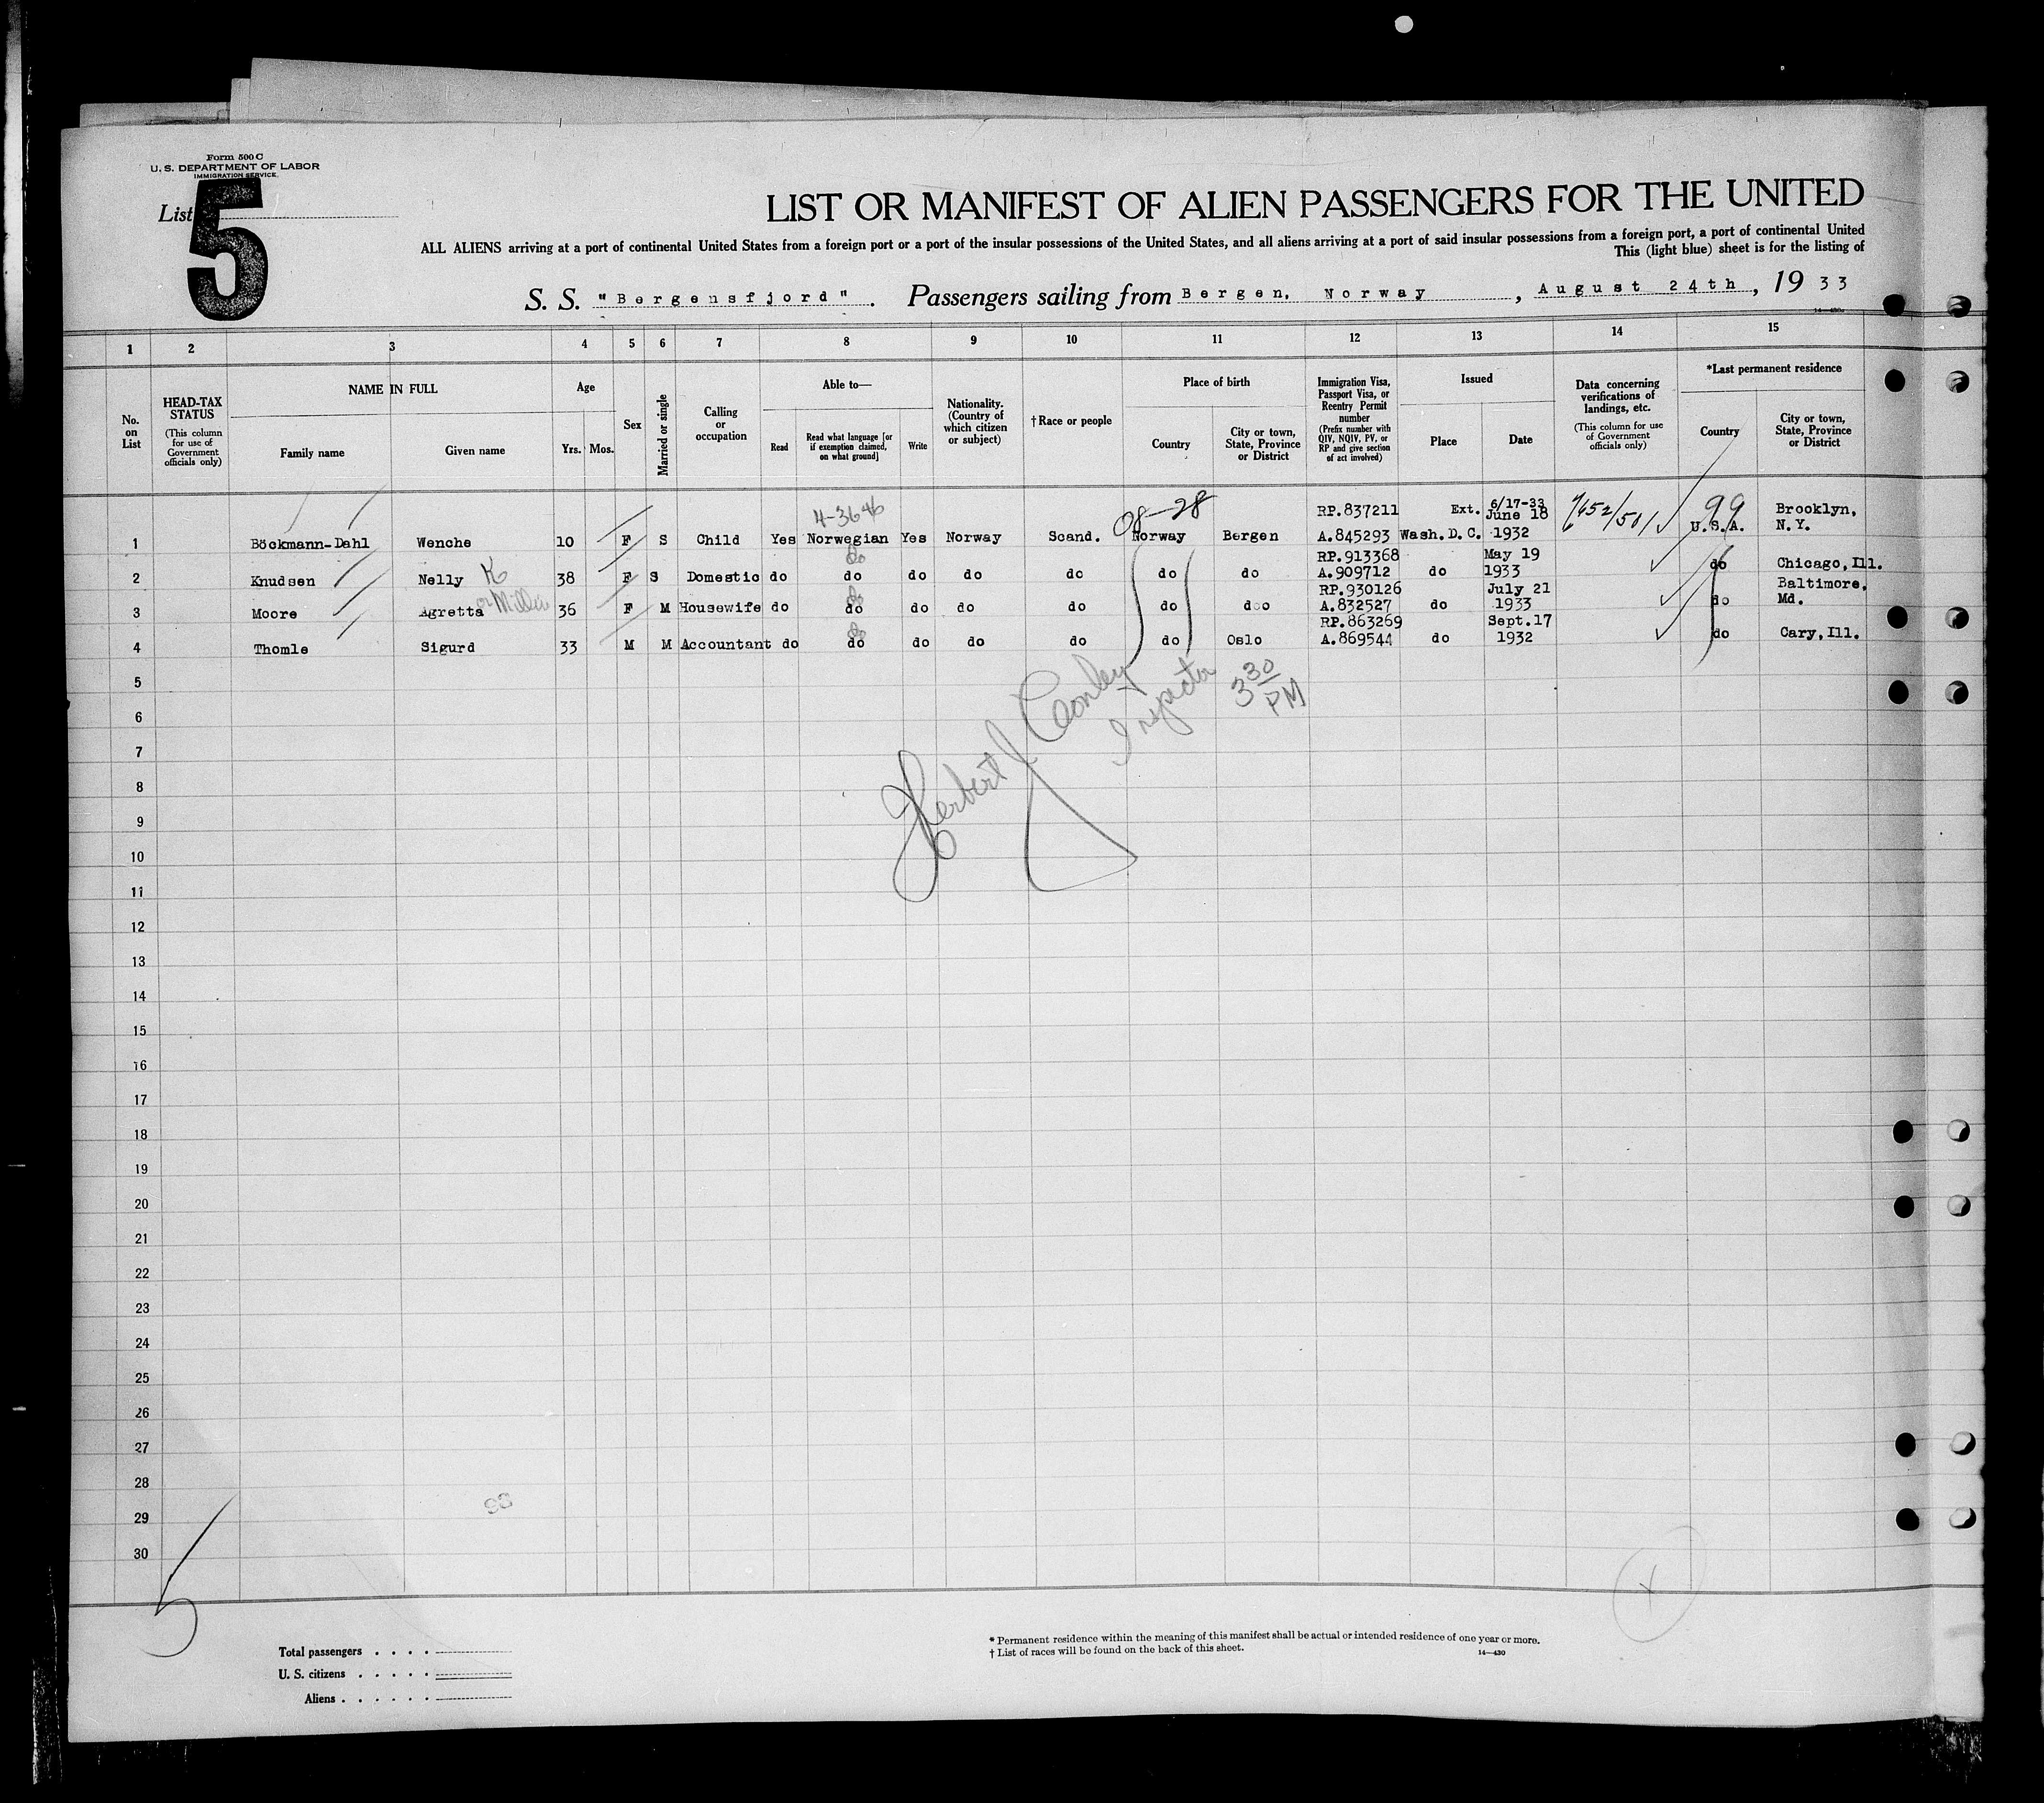 Form 500 C
U. S. DEPARTMENT OF LABOR
IMMIGRATION SERVICE
List 5
LIST OR MANIFEST OF ALIEN PASSENGERS FOR THE UNITED
ALL ALIENS arriving at a port of continental United States from a foreign port or a port of the insular possessions of the United States, and all aliens arriving at a port of said insular possessions from a foreign port, a port of continental United
This (light blue) sheet is for the listing of
S. S. "Bergensfjord". Passengers sailing from Bergen, Norway, August 24th, 19 33
1 2 3 4 5 6 7 8 9 10 11 12 13 14 15
No. on List
HEAD-TAX STATUS (This column for use of Government officials only)
NAME IN FULL
Family name
Given name
Age
Yrs. Mos.
Sex
Married or single
Calling or occupation
Able to—
Read
Read what language [or if exemption claimed, on what ground]
Write
Nationality. (Country of which citizen or subject)
†Race or people
Place of birth
Country
City or town, State, Province or District
Immigration Visa, Passport Visa, or Reentry Permit number (Prefix number with QIV, NQIV, PV, or RP and give section of act involved)
Issued
Place
Date
Data concerning verifications of landings, etc. (This column for use of Government officials only)
*Last permanent residence
Country
City or town, State, Province or District
4-3646 08-28 RP.837211 Ext. 6/17-33 June 18 99 Brooklyn,
1 Böckmann-Dahl Wenche 10 F S Child Yes Norwegian Yes Norway Scand. Norway Bergen A.845293 Wash.D.C. 1932 U.S.A. N.Y.
do RP.913368 May 19
2 Knudsen Nelly K 38 F S Domestic do do do do do do do A.909712 do 1933 do Chicago,Ill.
do RP.930126 July 21 Baltimore,
3 Moore Agretta or Miller 36 F M Housewife do do do do do do doo A.832527 do 1933 do Md.
do RP.863269 Sept.17
4 Thomle Sigurd 33 M M Accountant do do do do do do Oslo A.869544 do 1932 do Cary,Ill.
5
6
7
8
9
10
11
12
13
14
15
16
17
18
19
20
21
22
23
24
25
26
27
28
29
30
Herbert J Coonley
Inspector
3 30 PM
5
Total passengers . . . .
U. S. citizens . . . . .
Aliens . . . . . .
* Permanent residence within the meaning of this manifest shall be actual or intended residence of one year or more.
† List of races will be found on the back of this sheet.
14—430